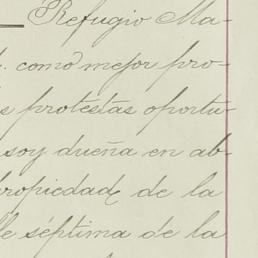 Refugio Ma-
como mejor pro-
s protestas oportu-
soy dueña en ab-
propiedad de la
le séptima de la